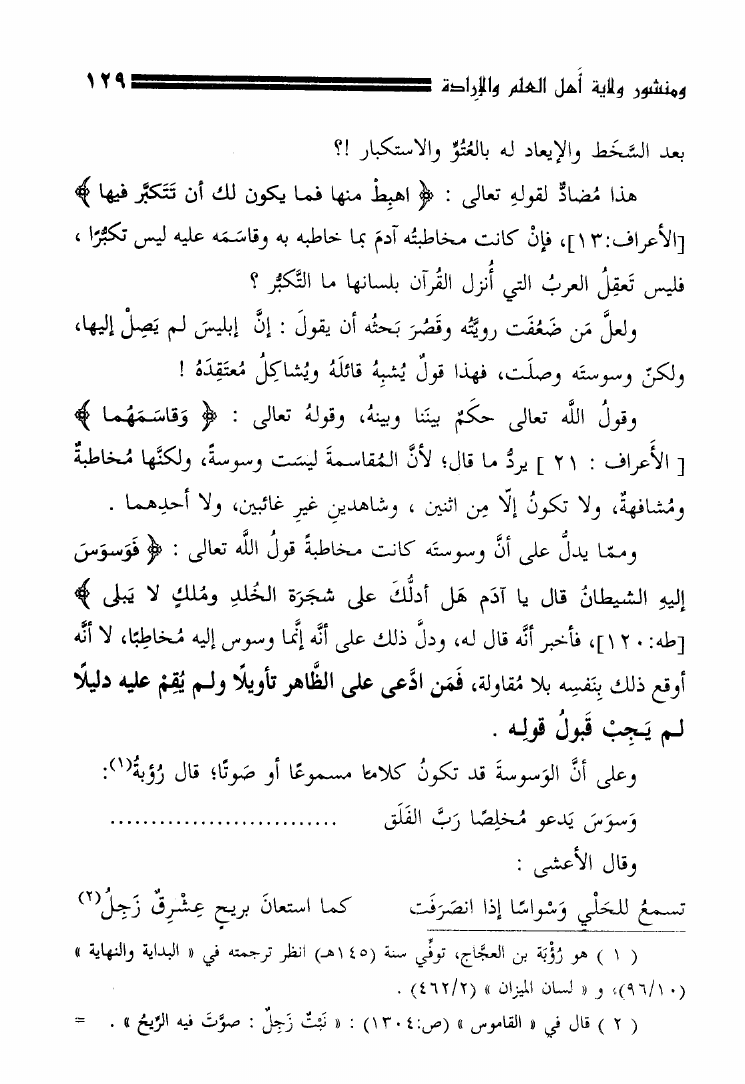 ومنشور ولاية أهل العلم والإرادة ١٢٩
بعد السَّخَط والإيعاد له بالعُتُوِّ والاستكبار !؟
هذا مُضادٌّ لقولهِ تعالى : ﴿ اهبِطْ منها فما يكون لك أن تَتَكبَّر فيها ﴾
[الأعراف:١٣]، فإنْ كانت مخاطبتُه آدمَ بما خاطبه به وقاسَمَه عليه ليس تكبُّرًا ،
فليس تَعقِلُ العربُ التي أُنزل القُرآن بلسانها ما التَّكبُّر ؟
ولعلَّ مَن ضَعُفَت رويَّتُه وقَصُرَ بَحثُه أن يقولَ : إنَّ إبليسَ لم يَصِلْ إليها،
ولكنّ وسوستَه وصلَت، فهذا قولٌ يُشبِهُ قائلَهُ ويُشاكِلُ مُعتَقِدَهُ !
وقولُ اللَّه تعالى حكَمٌ بيننا وبينهُ، وقولهُ تعالى : ﴿ وَقاسَمَهُما ﴾
[ الأَعراف : ٢١ ] يردُّ ما قال؛ لأنَّ المُقاسمةَ ليسَت وسوسةً، ولكنَّها مُخاطبةٌ
ومُشافهةٌ، ولا تكونُ إلّا مِن اثنين ، وشاهدينِ غيرِ غائبين، ولا أحدِهما .
وممّا يدلُّ على أنَّ وسوستَه كانت مخاطبةً قولُ اللَّه تعالى : ﴿ فَوَسوَسَ
إليهِ الشيطانُ قال يا آدَم هَل أدلُّكَ على شجَرَة الخُلدِ ومُلكٍ لا يَبلى ﴾
[طه:١٢٠]، فأخبر أنَّه قال له، ودلَّ ذلك على أنَّه إنَّما وسوس إليه مُخاطِبًا، لا أنَّه
أوقع ذلك بِنَفسِه بلا مُقاولة، فَمَن ادَّعى على الظَّاهر تأويلًا ولم يُقِمْ عليه دليلًا
لم يَجِبْ قَبولُ قولِه .
وعلى أنَّ الوَسوسةَ قد تكونُ كلامًا مسموعًا أو صَوتًا؛ قال رُؤبةُ(١):
وَسوَسَ يَدعو مُخلِصًا رَبَّ الفَلَق ...........................
وقال الأعشى :
تسمعُ للحَلْي وَسْواسًا إذا انصَرَفَت كما استعانَ بريحٍ عِشْرِقٌ زَجِلُ(٢)
( ١ ) هو رُؤْبَة بن العجَّاج، توفِّي سنة (١٤٥هـ) انظر ترجمته في « البداية والنهاية »
(٩٦/١٠)، و « لسان الميزان » (٤٦٢/٢) .
( ٢ ) قال في « القاموس » (ص:١٣٠٤) : « نَبْتٌ زَجِلٌ : صوَّتَ فيه الرِّيحُ » . =